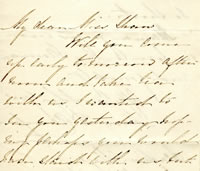 My dear Miss Shaw
Will you come
up early tomorrow after
noon and take tea
with us I wanted to
see you yesterday, hop-
ing perhaps you would
have staid with us, but